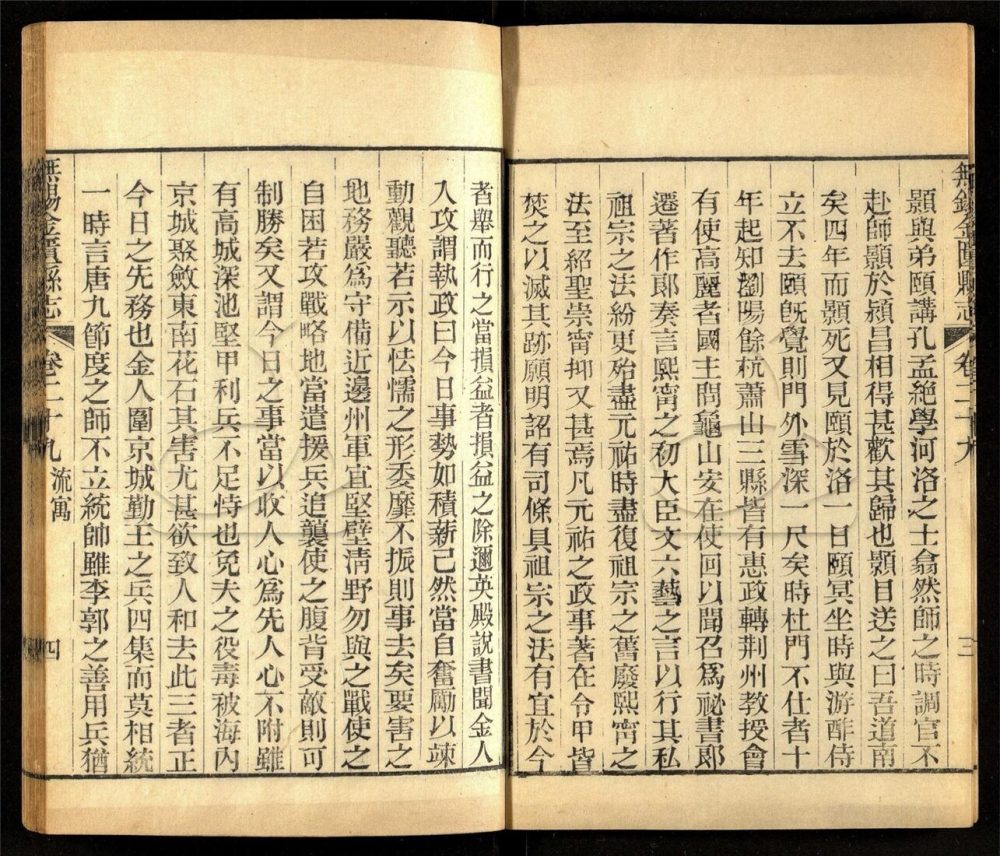 無錫金匱縣志 卷二十九 三
顥與弟頤講孔孟絕學河洛之士翕然師之時調官不
赴師顥於潁昌相得甚歡其歸也顥目送之曰吾道南
矣四年而顥死又見頤於洛一日頤冥坐時與游酢侍
立不去頤既覺則門外雪深一尺矣時杜門不仕者十
年起知瀏陽餘杭蕭山三縣皆有惠政轉荆州教授會
有使高麗者國主問龜山安在使回以聞召爲祕書郎
遷著作郎奏言熙甯之初大臣文六藝之言以行其私
祖宗之法紛更殆盡元祐時盡復祖宗之舊廢熙甯之
法至紹聖崇甯抑又甚焉凡元祐之政事著在令甲皆
焚之以滅其跡願明詔有司條具祖宗之法有宜於今
者舉而行之當損益者損益之除邇英殿說書聞金人
入攻謂執政曰今日事勢如積薪已然當自奮勵以竦
動觀聽若示以怯懦之形委靡不振則事去矣要害之
地務嚴爲守備近邊州軍宜堅壁清野勿與之戰使之
自困若攻戰略地當遣援兵追襲使之腹背受敵則可
制勝矣又謂今日之事當以收人心爲先人心不附雖
有高城深池堅甲利兵不足恃也免夫之役毒被海內
京城聚斂東南花石其害尤甚欲致人和去此三者正
今日之先務也金人圍京城勤王之兵四集而莫相統
一時言唐九節度之師不立統帥雖李郭之善用兵猶
無錫金匱縣志 卷二十九 流寓 四